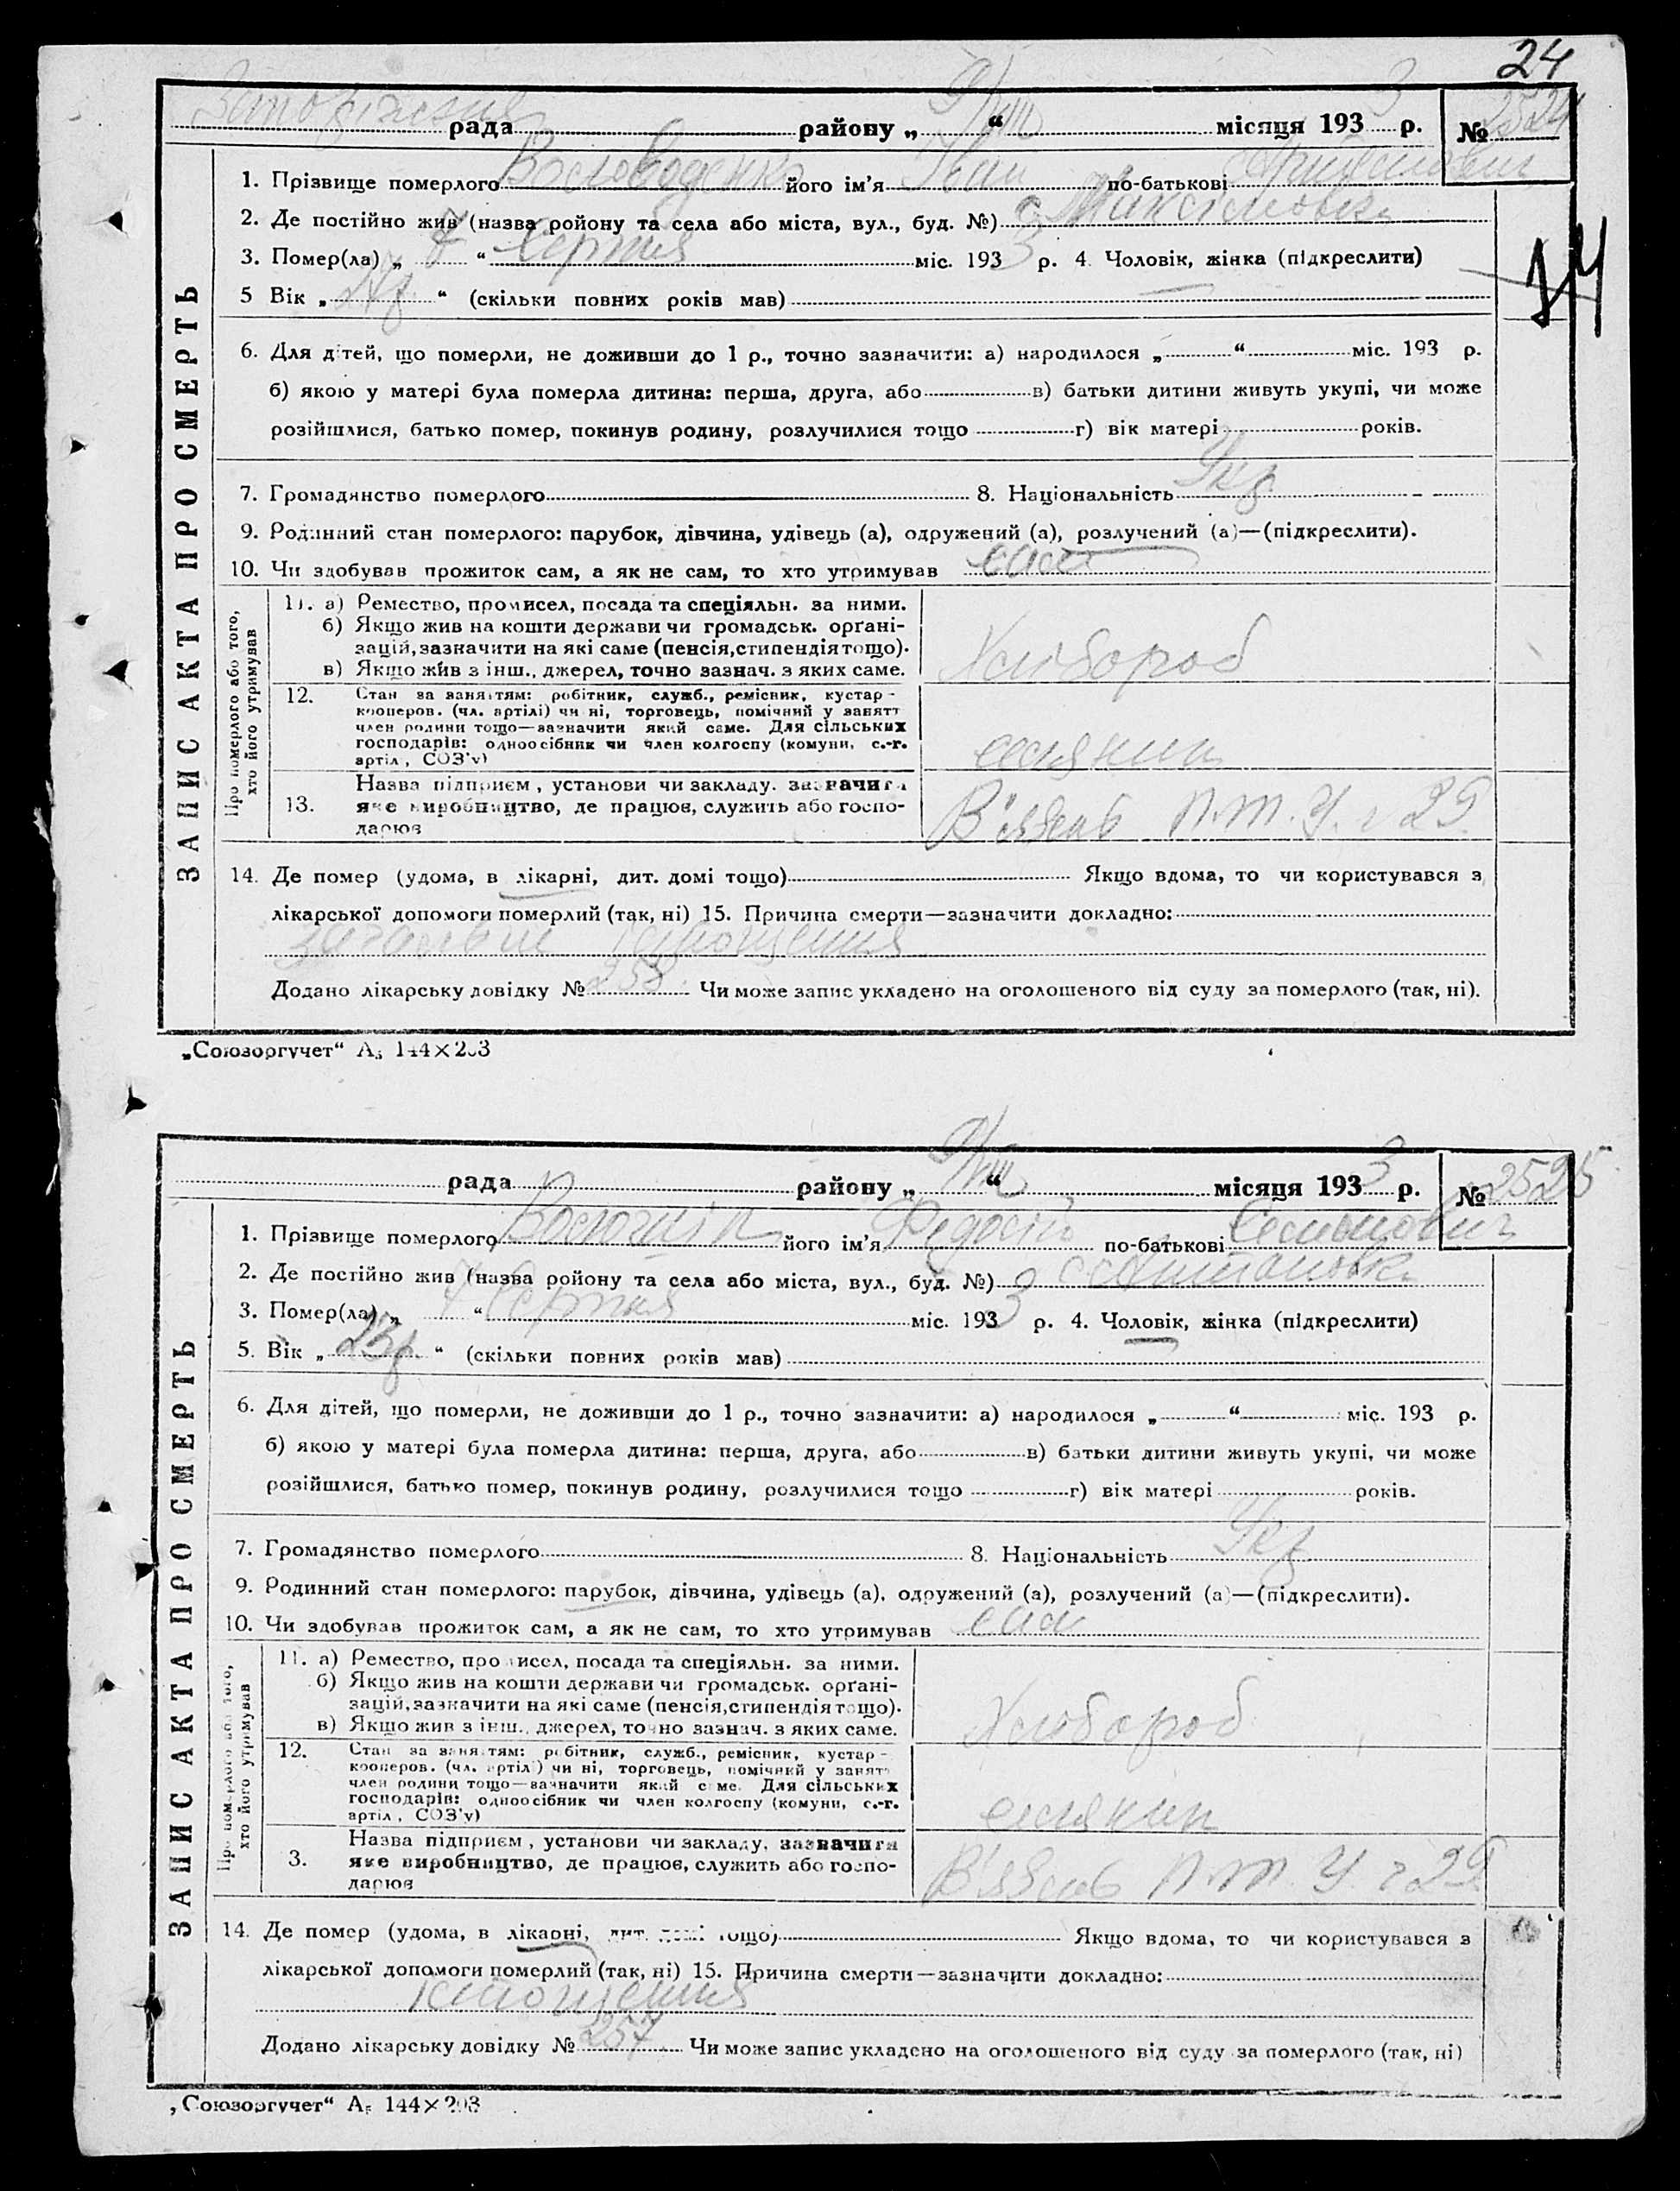 24
Запоріжжя рада району „ 9/VIII “ місяця 1933 р. № 2524
ЗАПИС АКТА ПРО СМЕРТЬ
1. Прізвище померлого його ім'я Іван по-батькові
2. Де постійно жив (назва ройону та села або міста, вул., буд. №) с.
3. Помер(ла) „ 7 “ Серпня міс. 1933 р. 4. Чоловік, жінка (підкреслити)
14
5 Вік „ “ (скільки повних років мав)
6. Для дітей, що померли, не доживши до 1 р., точно зазначити: а) народилося „ “ міс. 193 р.
б) якою у матері була померла дитина: перша, друга, або в) батьки дитини живуть укупі, чи може
розійшлися, батько помер, покинув родину, розлучилися тощо г) вік матері років.
7. Громадянство померлого 8. Національність Укр
9. Родинний стан померлого: парубок, дівчина, удівець (а), одружений (а), розлучений (а)—(підкреслити).
10. Чи здобував прожиток сам, а як не сам, то хто утримував сам
Про померлого або того, хто його утримував
11. а) Ремество, промисел, посада та спеціяльн. за ними.
б) Якщо жив на кошти держави чи громадськ. орґані-
зацій, зазначити на які саме (пенсія, стипендія тощо).
в) Якщо жив з інш., джерел, точно зазнач. з яких саме.
Хлібороб
12. Стан за заняттям: робітник, служб., ремісник, кустар-
кооперов. (чл. артілі) чи ні, торговець, помічний у занятт
член родини тощо—зазначити який саме. Для сільських
господарів: одноосібник чи член колгоспу (комуни, с.-г.
артіл, СОЗ'у)
селянин
13. Назва підприєм, установи чи закладу, зазначити
яке виробництво, де працює, служить або госпо-
дарює
В'язень П.Т.У. 29
14. Де помер (удома, в лікарні, дит. домі тощо) Якщо вдома, то чи користувався з
лікарської допомоги померлий (так, ні) 15. Причина смерти—зазначити докладно:
загальне істощення
Додано лікарську довідку № 258. Чи може запис укладено на оголошеного від суду за померлого (так, ні).
„Союзоргучет“ А₅ 144×203
рада району „ 9/VIII “ місяця 1933 р. № 2525
ЗАПИС АКТА ПРО СМЕРТЬ
1. Прізвище померлого його ім'я Федосій по-батькові Семенович
2. Де постійно жив (назва ройону та села або міста, вул., буд. №)
3. Помер(ла) „ 7 “ Серпня міс. 1933 р. 4. Чоловік, жінка (підкреслити)
5. Вік „ 23р. “ (скільки повних років мав)
6. Для дітей, що померли, не доживши до 1 р., точно зазначити: а) народилося „ “ міс. 193 р.
б) якою у матері була померла дитина: перша, друга, або в) батьки дитини живуть укупі, чи може
розійшлися, батько помер, покинув родину, розлучилися тощо г) вік матері років.
7. Громадянство померлого 8. Національність Укр
9. Родинний стан померлого: парубок, дівчина, удівець (а), одружений (а), розлучений (а)—(підкреслити).
10. Чи здобував прожиток сам, а як не сам, то хто утримував сам
Про померлого або того, хто його утримував
11. а) Ремество, промисел, посада та спеціяльн. за ними.
б) Якщо жив на кошти держави чи громадськ. орґані-
зацій, зазначити на які саме (пенсія, стипендія тощо).
в) Якщо жив з інш., джерел, точно зазнач. з яких саме.
Хлібороб
12. Стан за заняттям: робітник, служб., ремісник, кустар-
кооперов. (чл. артілі) чи ні, торговець, помічний у занятт
член родини тощо—зазначити який саме. Для сільських
господарів: одноосібник чи член колгоспу (комуни, с.-г.
артіл, СОЗ'у)
селянин
3. Назва підприєм, установи чи закладу, зазначити
яке виробництво, де працює, служить або госпо-
дарює
В'язень П.Т.У. 29
14. Де помер (удома, в лікарні, дит. домі тощо) Якщо вдома, то чи користувався з
лікарської допомоги померлий (так, ні) 15. Причина смерти—зазначити докладно:
істощення
Додано лікарську довідку № 257. Чи може запис укладено на оголошеного від суду за померлого (так, ні)
„Союзоргучет“ А₅ 144×203